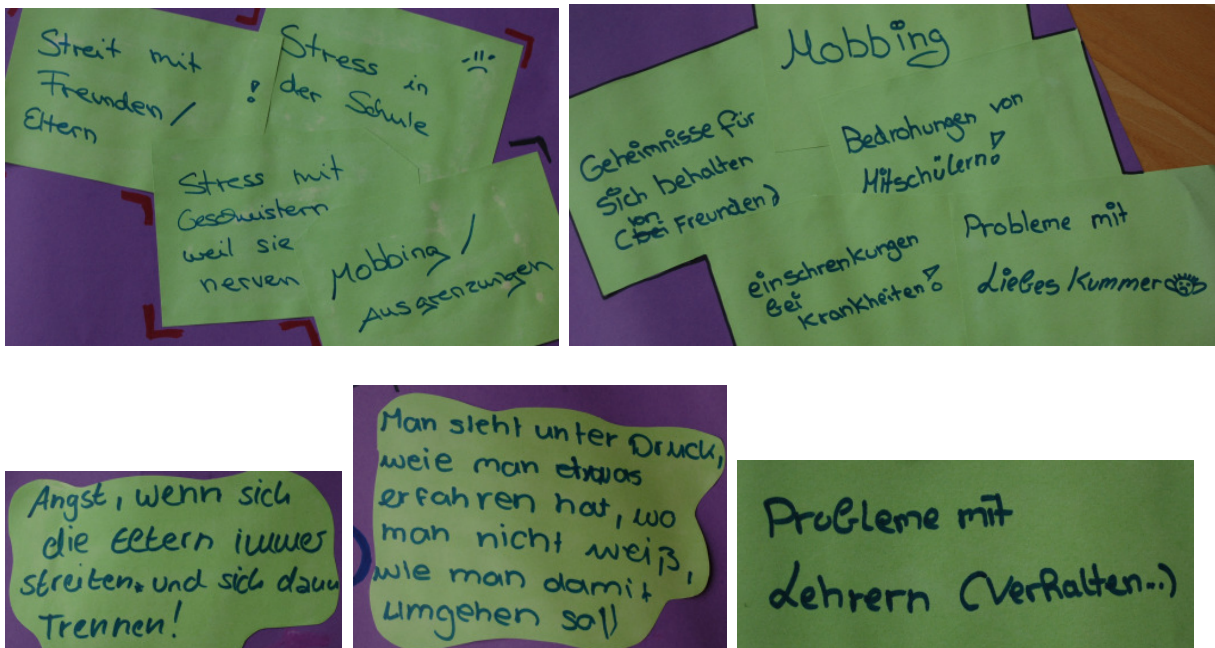 Streit mit
Freunden /
Eltern !
Stress in
der Schule
Stress mit
Geschwistern
weil sie
nerven
Mobbing /
Ausgrenzungen
Mobbing
Geheimnisse für
sich behalten
(von Freunden)
Bedrohungen von
Mitschülern!
einschrenkungen
bei
Krankheiten!
Probleme mit
Liebes Kummer
Angst, wenn sich
die Eltern immer
streiten. und sich dann
Trennen!
Man steht unter Druck,
weie man etwas
erfahren hat, wo
man nicht weiß,
wie man damit
umgehen soll
Probleme mit
Lehrern (Verhalten...)